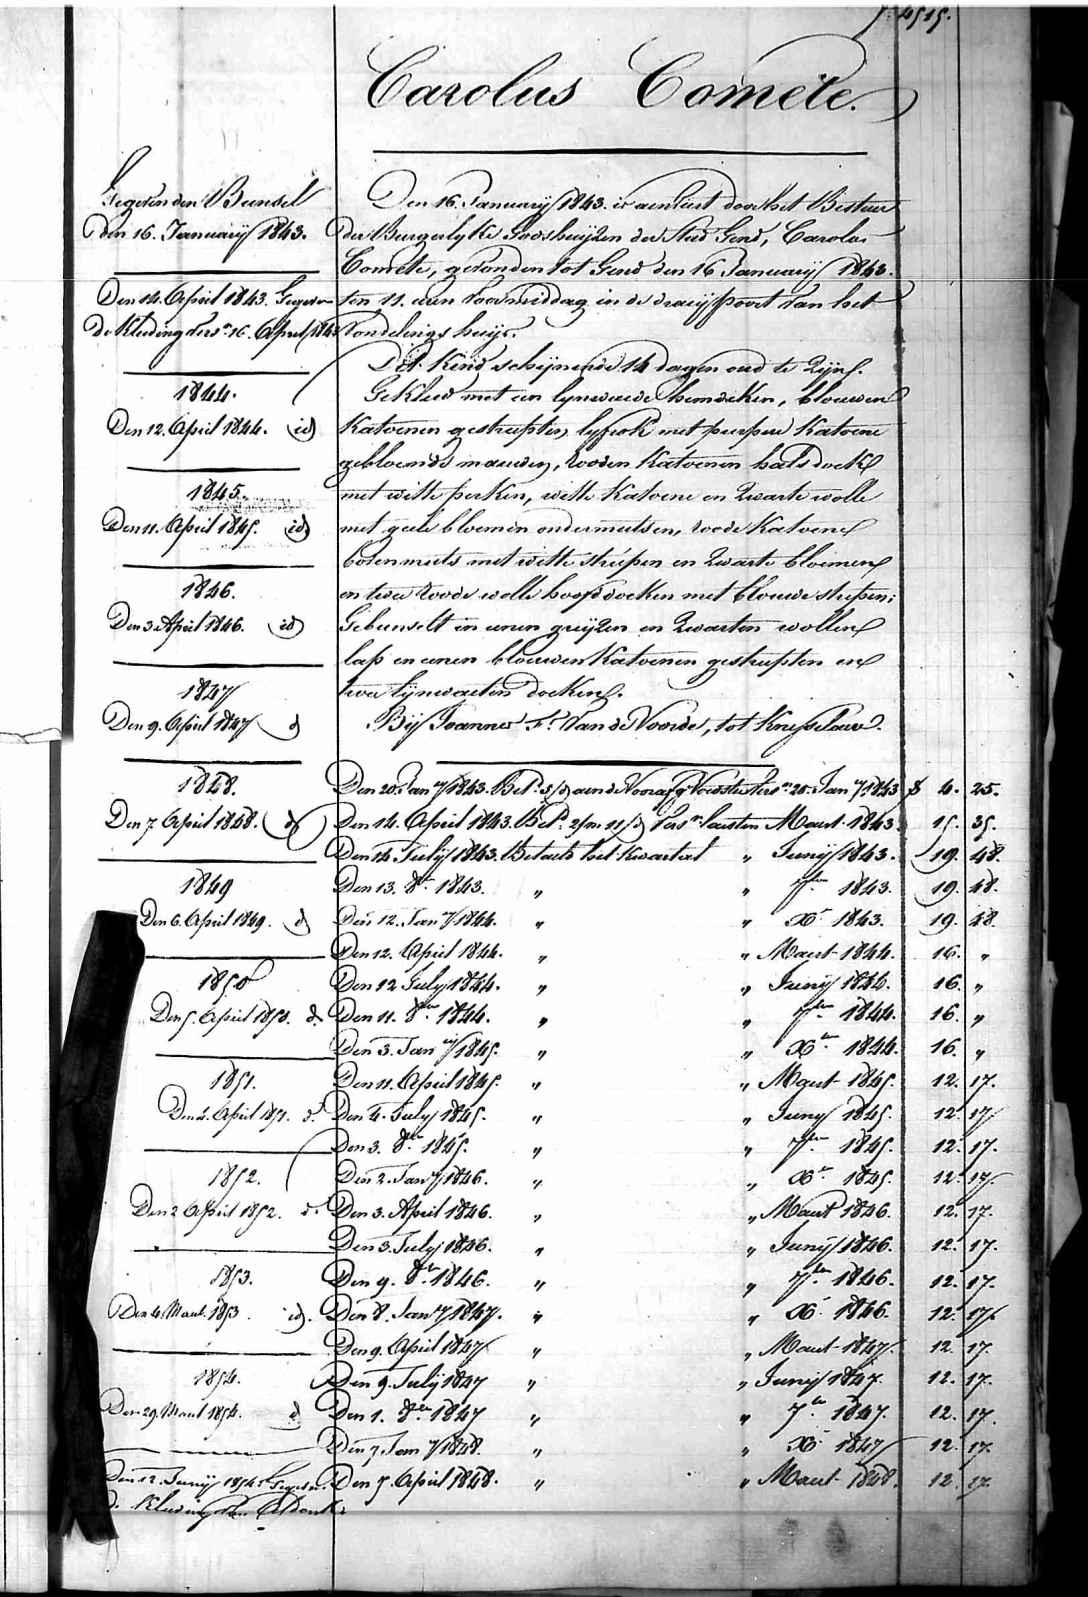 4515.
Carolus Comète.
Gegeven den Bunsel
Den 16. Januarij 1843.
Den 14. April 1843. Gegeven
De Kleeding vers. 16. April 1843
1844.
Den 12. April 1844. id
1845.
Den 11. April 1845. id
1846.
Den 3 April 1846. id
1847
Den 9. April 1847 d
1848.
Den 7. April 1848. d
1849
Den 6. April 1849. d
1850
Den 5. April 1850. d.
1851.
Den 4. April 1851. d.
1852.
Den 2 April 1852. d.
1853.
Den 4. Maart 1853 id.
1854.
Den 29. Maart 1854. d
Den 12. Junij 1854 Gegeven
d. Kleeding
Den 16. Januarij 1843. is aenhiert door het Bestuer
der Burgerlyke Godshuijzen der Stad Gend, Carolus
Comète, gevonden tot Gend den 16 Januarij 1843.
ten 11. uren voormiddag in de draeijpoort van het
Vondelings huijs.
Dit Kind schijnende 14 dagen oud te Zijn.
Gekleed met een lynwaede hemdeken, blouwen
Katoenen gestreepten lyfrok met purpere Katoene
gebloemde mauwen, rooden Katoenen halsdoek
met witte perken, witte Katoene en Zwarte wolle
met geele bloemen ondermutsen, roode Katoene
bovenmuts met witte strepen en Zwarte bloemen
en twee roode wolle hoofddoeken met blouwe strepen;
Gebunselt in eenen grijzen en Zwarten wollen
lap en eenen blouwen Katoenen gestreepten en
twee lijnwaeten doeken.
Bij Joannes Fr. Van de Voorde, tot Knesselaere.
Den 20. Jany 1843. Bet. aen de Voorz. Voedster vers. 20. Jany 1843 f 4. 25.
Den 14. April 1843. Bet. 2/m 11/d Vers. laesten Maart 1843. 15. 35.
Den 14. Julij 1843. Betaelt het Kwartael " Junij 1843. 19. 48.
Den 13. 8er 1843. " " 7ber 1843. 19. 48.
Den 12. Jany 1844. " " Xr 1843. 19. 48.
Den 12. April 1844. " " Maart 1844. 16. "
Den 12 July 1844. " " Junij 1844. 16. "
Den 11. 8ber 1844. " " 7ber 1844. 16. "
Den 3. Jany 1845. " " Xber 1844. 16. "
Den 11. April 1845. " " Maart 1845. 12. 17.
Den 4. July 1845. " " Juny 1845. 12. 17
Den 3. 8ber 1845. " " 7ber 1845. 12. 17.
Den 2. Jany 1846. " " Xer 1845. 12. 17.
Den 3. April 1846. " " Maart 1846. 12. 17.
Den 3. July 1846. " " Junij 1846. 12. 17.
Den 9. 8ber 1846. " " 7ber 1846. 12. 17.
Den 8. Jany 1847. " " Xr 1846. 12. 17
Den 9. April 1847 " " Maart 1847. 12. 17.
Den 9. Julij 1847 " " Junij 1847. 12. 17.
Den 1. 8ber 1847 " " 7br 1847. 12. 17.
Den 7. Jany 1848. " " Xr 1847 12. 17.
Den 7. April 1848. " " Maart 1848. 12. 17.